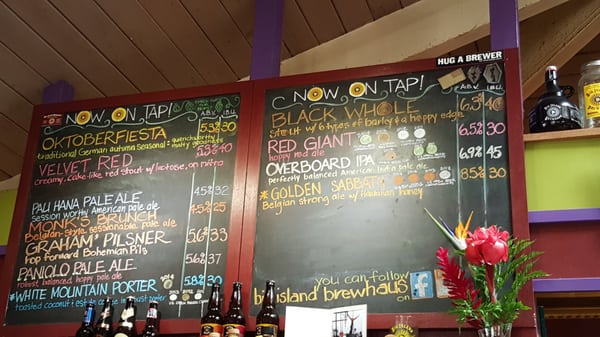 NOW ON TAP!
A.B.V. I.B.U.
OKTOBERFIESTA 5.3% 30
traditional German autumn seasonal - quenchworthy malty goodness
VELVET RED 5.3% 40
creamy, cake-like red stout w/lactose, on nitro
PAU HANA PALE ALE 4.5% 32
session worthy American pale ale
MONK'S BRUNCH 4.5% 25
Belgian Style sessionable pale ale
GRAHAM' PILSNER 5.6% 33
hop forward Bohemian Pils
PANIOLO PALE ALE 5.6% 37
robust, balanced hoppy pale ale
*WHITE MOUNTAIN PORTER 5.8% 30
toasted coconut
porter
HUG A BREWER
NOW ON TAP!
A.B.V. I.B.U.
BLACK WHOLE 6.3% 40
Stout w/ 6 types of barley & a hoppy edge
RED GIANT 6.5% 30
hoppy red ale
OVERBOARD IPA 6.9% 45
perfectly balanced American India pale ale
*GOLDEN SABBATH 8.5% 30
Belgian strong ale w/ Hawaiian honey
you can follow
big island brewhaus
on